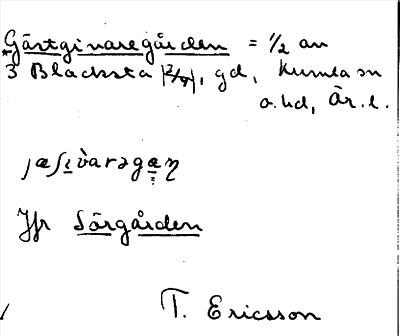 Gästginaregården = 1/2 av
3 Blacksta |2/7|, gd, Kumla sn
o. hd, Är. l.
Jfr Sörgården
T. Ericsson